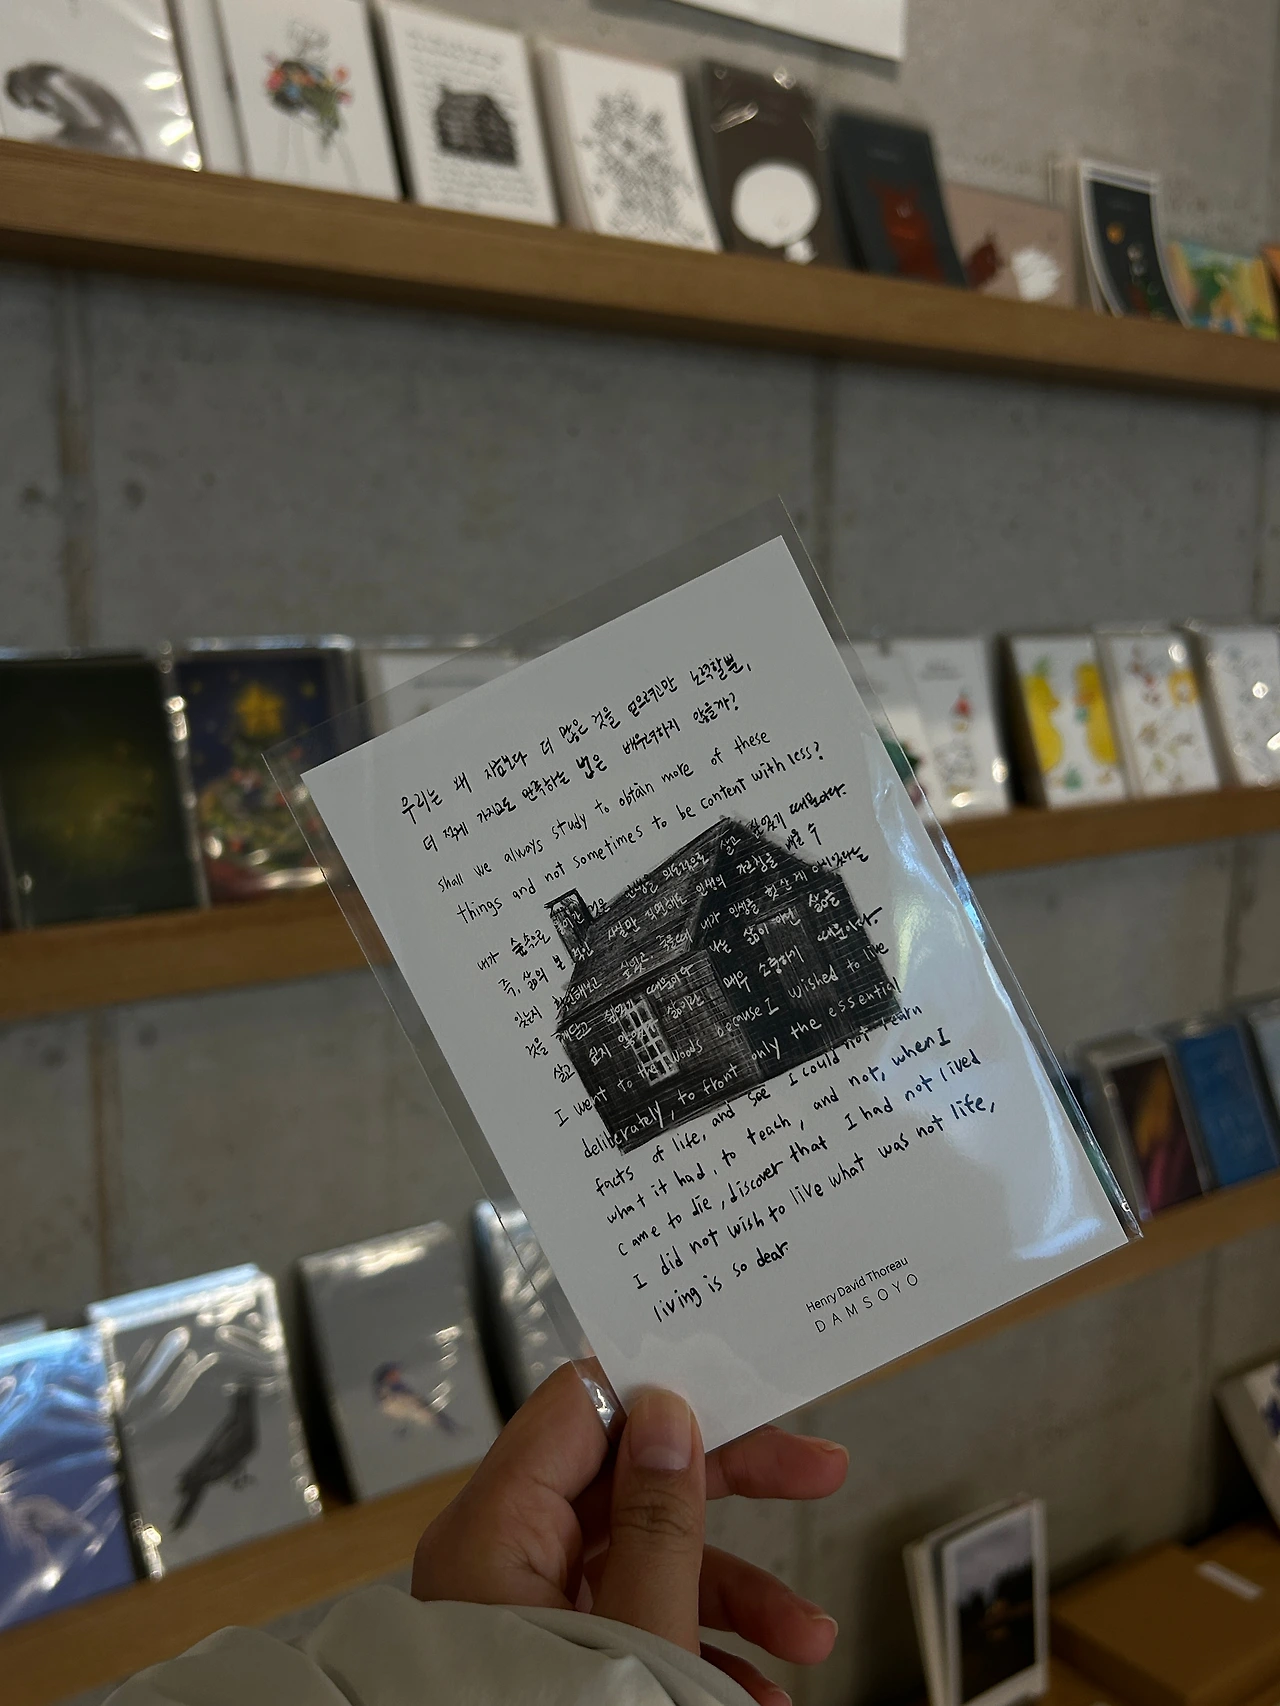 우리는 왜 지금보다 더 많은 것을 얻으려고만 노력할뿐,
더 적게 가지고도 만족하는 법은 배우려하지 않을까?
shall we always study to obtain more of these
things and not sometimes to be content with less?
내가 숲속으로 들어간 것은 인생을 의도적으로 살고 싶었기 때문이다.
즉, 삶의 본질적인 사실만 직면해도 인생의 가르침을 배울 수
있는지 확인해보고 싶었고 죽을때 내가 인생을 헛살게 아니었다는
것을 깨닫고 싶었기 때문이다 나는 삶이 아닌 삶을
살고 싶지 않았다 삶이란 매우 소중하기 때문이다.
I went to the woods because I wished to live
deliberately, to front only the essential
facts of life, and see I could not learn
what it had, to teach, and not, when I
came to die, discover that I had not lived
I did not wish to live what was not life,
living is so dear.
Henry David Thoreau
DAMSOYO